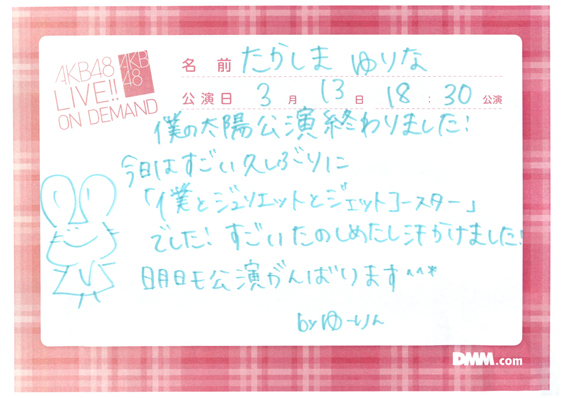 AKB48
LIVE!!
ON DEMAND
AKB
48
名 前 たかしま ゆりな
公演日 3 月 13 日 18 : 30 公演
僕の太陽公演終わりました!
今日はすごい久しぶりに
「僕とジュリエットとジェットコースター」
でした! すごいたのしめたし汗かけました!
明日も公演がんばります^^*
by ゆーりん
DMM.com